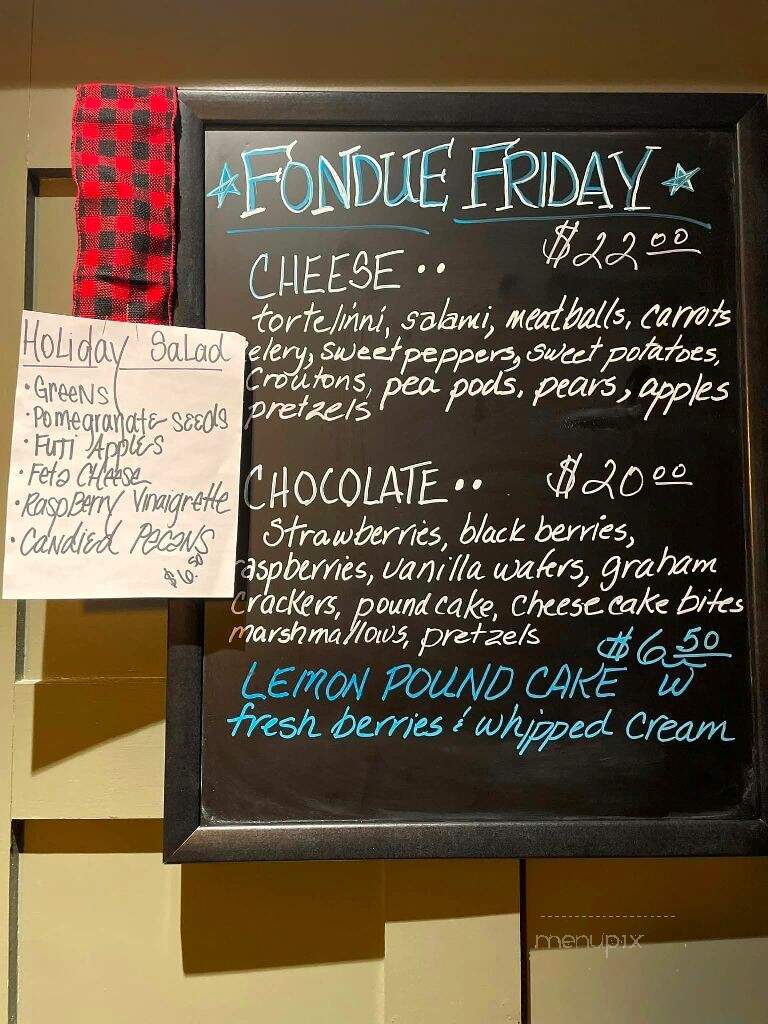 FONDUE FRIDAY
$22.00
CHEESE ..
tortelinni, salami, meatballs, carrots
elery, sweet peppers, sweet potatoes,
Croutons, pea pods, pears, apples
pretzels
CHOCOLATE .. $20.00
Strawberries, black berries,
raspberries, vanilla wafers, graham
Crackers, pound cake, cheese cake bites
marshmallows, pretzels
$6.50
LEMON POUND CAKE w
fresh berries & whipped cream
Holiday Salad
• Greens
• Pomegranate seeds
• Fuji Apples
• Feta Cheese
• Raspberry Vinaigrette
• Candied Pecans
$6.50
menupix